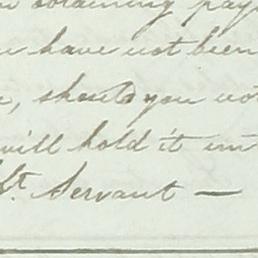 obtaining pay
have not been
should you not
will hold it in
bt. Servant —